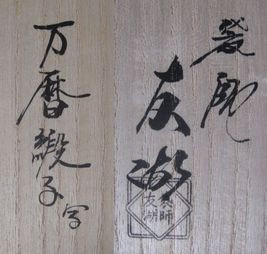 袋師
友湖
袋師
友湖
万暦緞子写